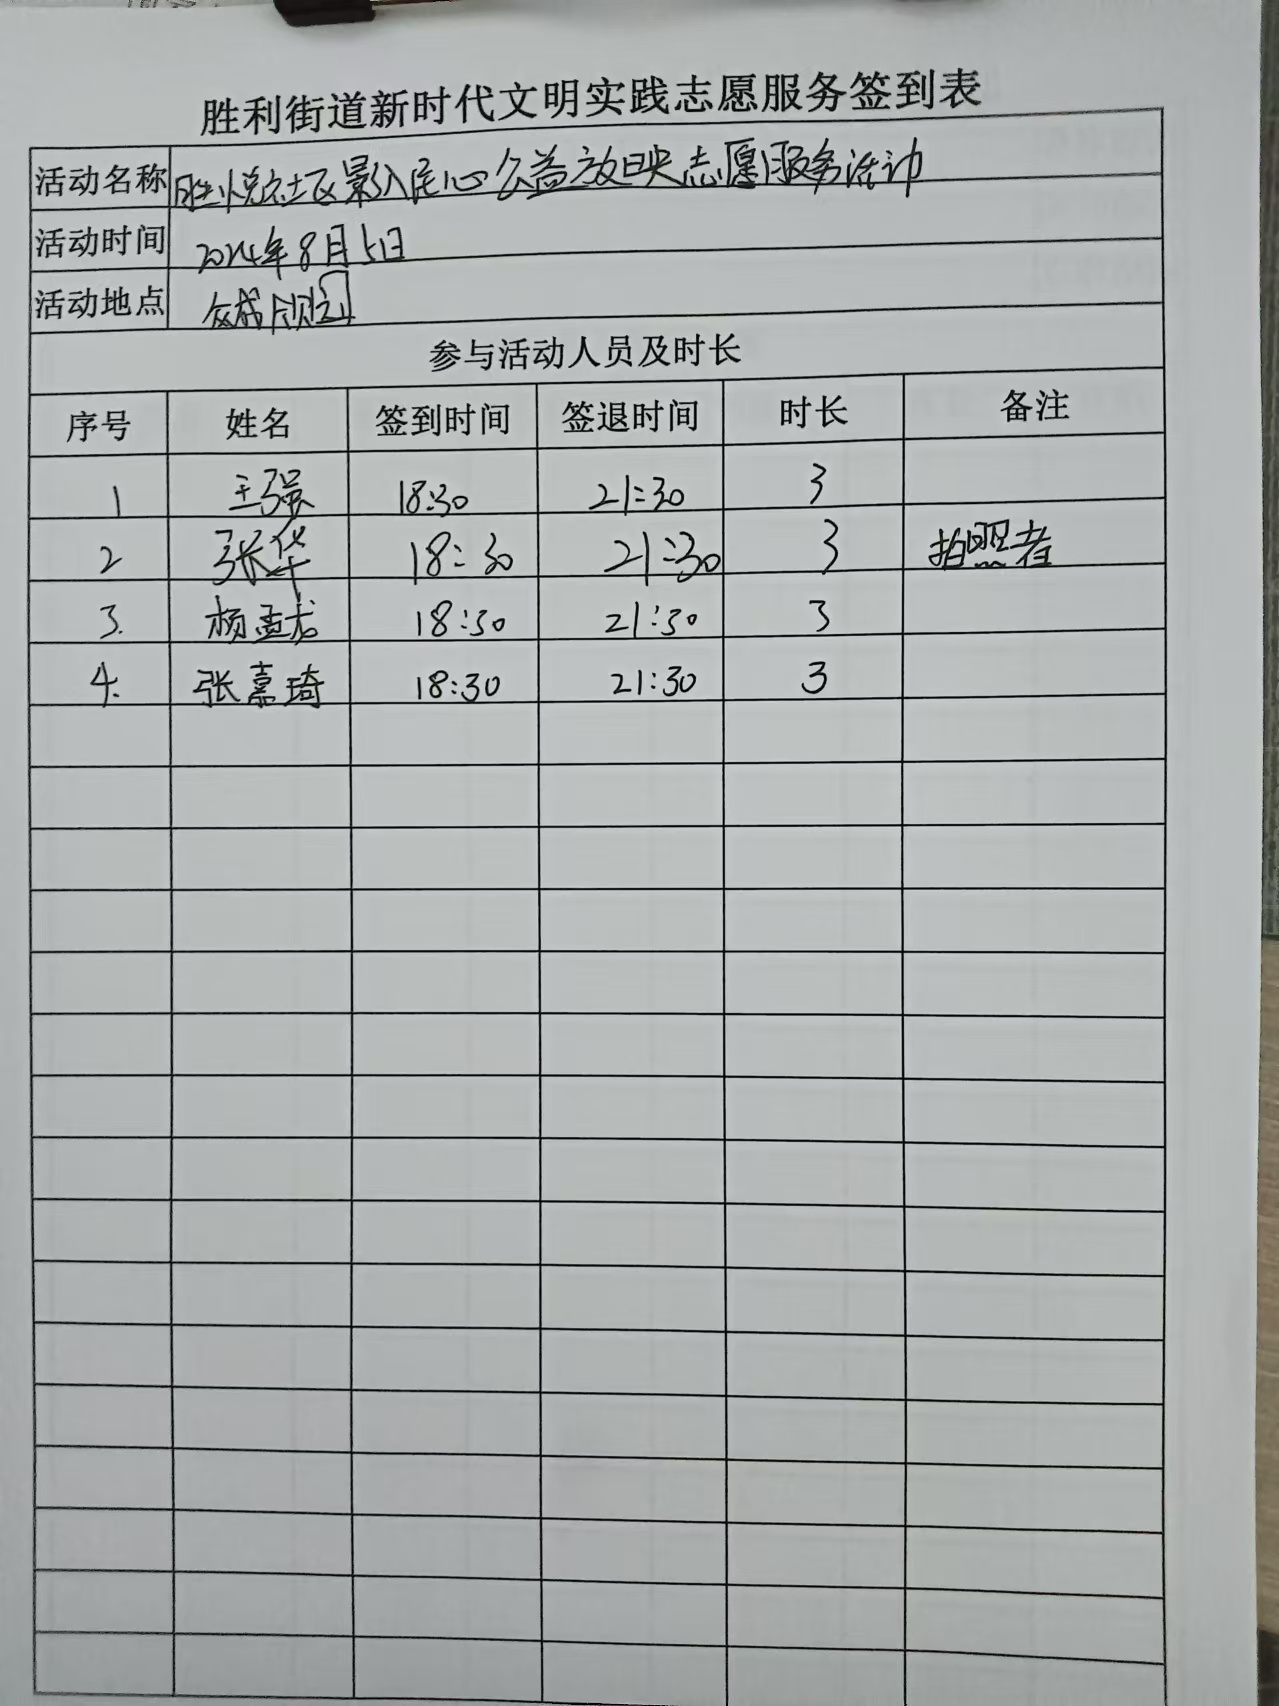 胜利街道新时代文明实践志愿服务签到表
活动名称 胜悦社区影入民心公益放映志愿服务活动
活动时间 2024年8月5日
活动地点 众成
参与活动人员及时长
序号 姓名 签到时间 签退时间 时长 备注
1 王强 18:30 21:30 3
2 张华 18:30 21:30 3 拍照者
3. 杨孟龙 18:30 21:30 3
4. 张嘉琦 18:30 21:30 3